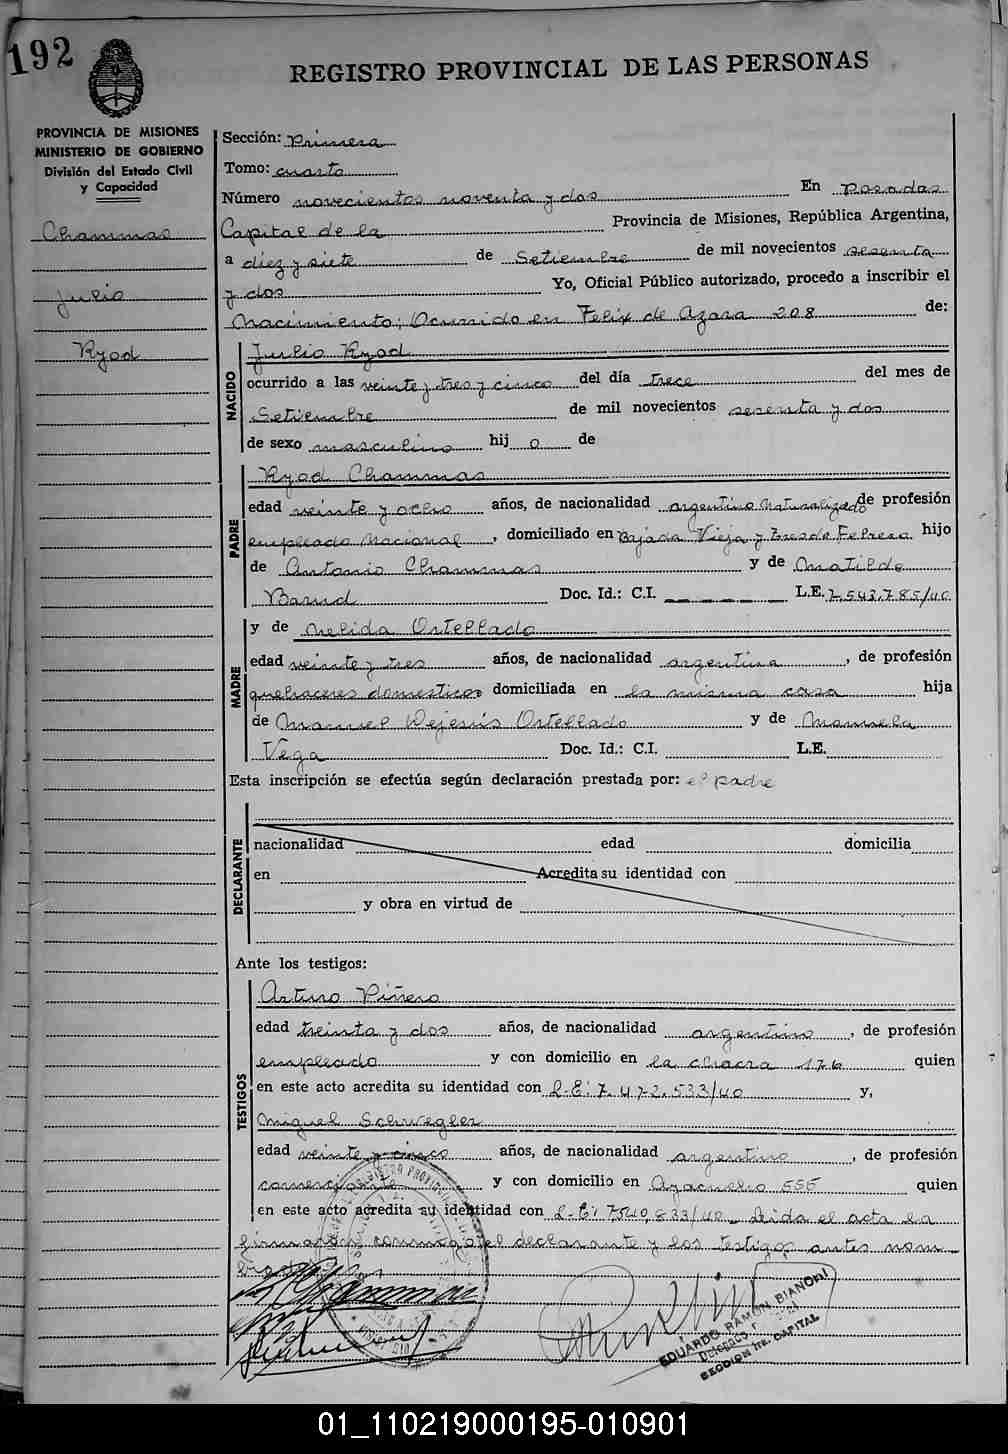 192
REGISTRO PROVINCIAL DE LAS PERSONAS
PROVINCIA DE MISIONES
MINISTERIO DE GOBIERNO
División del Estado Civil
y Capacidad
Chammas
Julio
Ryad
Sección: Primera
Tomo: cuarto
Número novecientos noventa y dos En Posadas
Capital de la Provincia de Misiones, República Argentina,
a diez y siete de Setiembre de mil novecientos sesenta
y dos Yo, Oficial Público autorizado, procedo a inscribir el
Nacimiento; Ocurrido en Felix de Azara 208 de:
NACIDO
Julio Ryad
ocurrido a las veinte y tres y cinco del día trece del mes de
Setiembre de mil novecientos sesenta y dos
de sexo masculino hij o de
PADRE
Ryad Chammas
edad veinte y ocho años, de nacionalidad argentino Naturalizado de profesión
empleado Nacional, domiciliado en Bajada Vieja y Tres de Febrero hijo
de Antonio Chammas y de Matilde
Barud Doc. Id.: C.I. — — — — L.E. 7.543.785/40
MADRE
y de Nelida Ortellado
edad veinte y tres años, de nacionalidad argentina, de profesión
quehaceres domesticos domiciliada en la misma casa hija
de Manuel Dejesús Ortellado y de Manuela
Vega Doc. Id.: C.I. L.E.
Esta inscripción se efectúa según declaración prestada por: el padre
DECLARANTE
nacionalidad edad domicilia
en Acredita su identidad con
y obra en virtud de
Ante los testigos:
TESTIGOS
Arturo Piñero
edad treinta y dos años, de nacionalidad argentino, de profesión
empleado y con domicilio en la chacra 176 quien
en este acto acredita su identidad con L.E: 7.472.533/40 y,
Miguel Schwegler
edad veinte y cinco años, de nacionalidad argentino, de profesión
comerciante y con domicilio en Ayacucho 555 quien
en este acto acredita su identidad con L.E: 7540.833/40 Leida el acta la
firmarán conmigo el declarante y los testigos antes nom-
brados
EDUARDO RAMON BIANONI
SECCION 1ra. CAPITAL
01_110219000195-010901